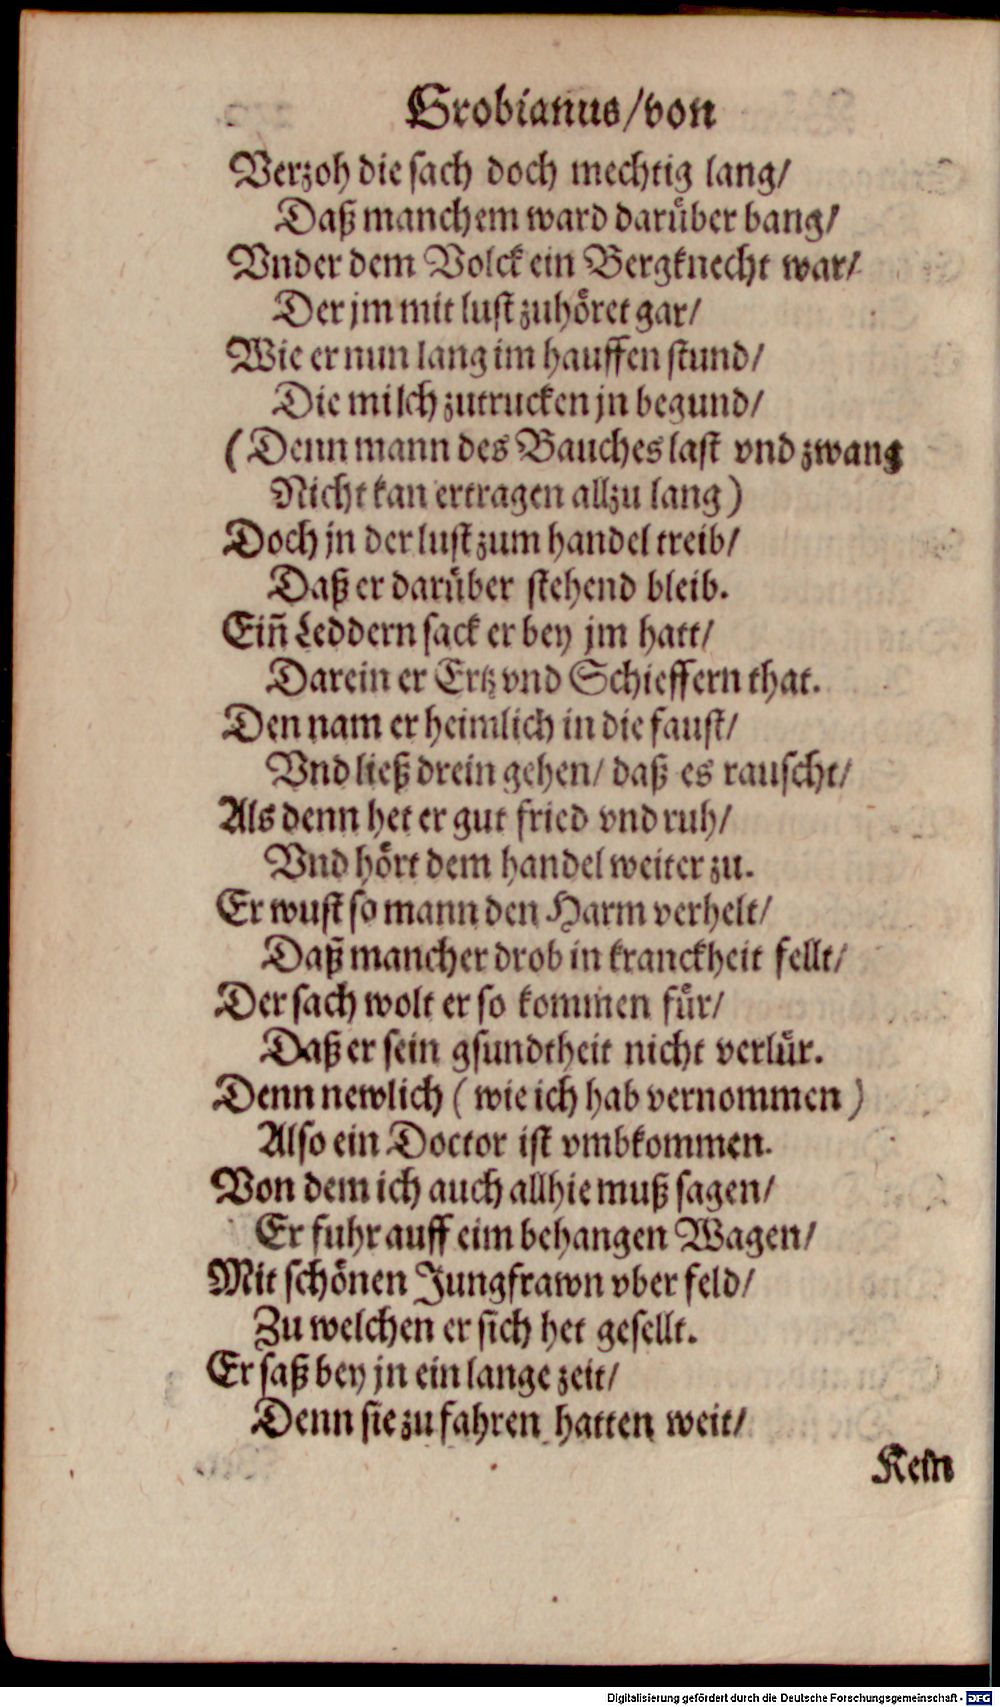 Grobianus/von
Verzoh die sach doch mechtig lang/
Daß manchem ward darüber bang/
Vnder dem Volck ein Bergknecht war/
Der jm mit lust zuhöret gar/
Wie er nun lang im hauffen stund/
Die milch zutrucken jn begund/
(Denn mann des Bauches last vnd zwang
Nicht kan ertragen allzu lang)
Doch jn der lust zum handel treib/
Daß er darüber stehend bleib.
Eiñ Leddern sack er bey jm hatt/
Darein er Ertz vnd Schieffern that.
Den nam er heimlich in die faust/
Vnd ließ drein gehen/ daß es rauscht/
Als denn het er gut fried vnd ruh/
Vnd hört dem handel weiter zu.
Er wust so mann den Harm verhelt/
Daß mancher drob in kranckheit fellt/
Der sach wolt er so kommen für/
Daß er sein gsundtheit nicht verlür.
Denn newlich (wie ich hab vernommen)
Also ein Doctor ist vmbkommen.
Von dem ich auch allhie muß sagen/
Er fuhr auff eim behangen Wagen/
Mit schönen Jungfrawn vber feld/
Zu welchen er sich het gesellt.
Er saß bey jn ein lange zeit/
Denn sie zu fahren hatten weit/
Kein
Digitalisierung gefördert durch die Deutsche Forschungsgemeinschaft - DFG